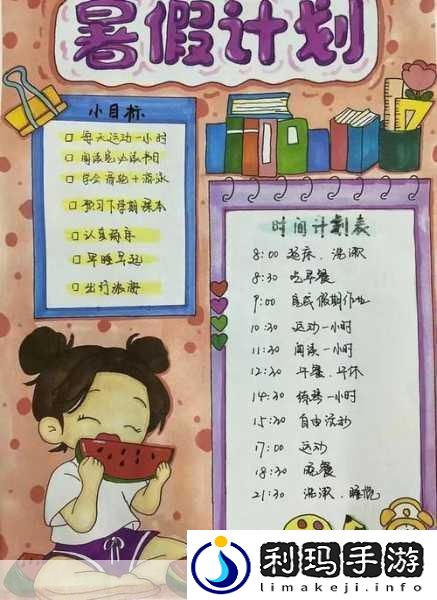 暑假计划
小目标
□ 每天运动一小时
□ 阅读完必读书目
□ 学会滑轮+游泳
□ 预习下学期课本
□ 认真练琴
□ 早睡早起
□ 出行旅游
时间计划表
8:00 起床、洗漱
8:30 吃早餐
9:00 完成假期作业
10:30 运动一小时
11:30 阅读一小时
12:30 午餐、午休
14:30 练琴一小时
15:30 自由活动
17:00 运动
18:30 晚餐
21:30 洗漱、睡觉
利玛手游
limakeji.info